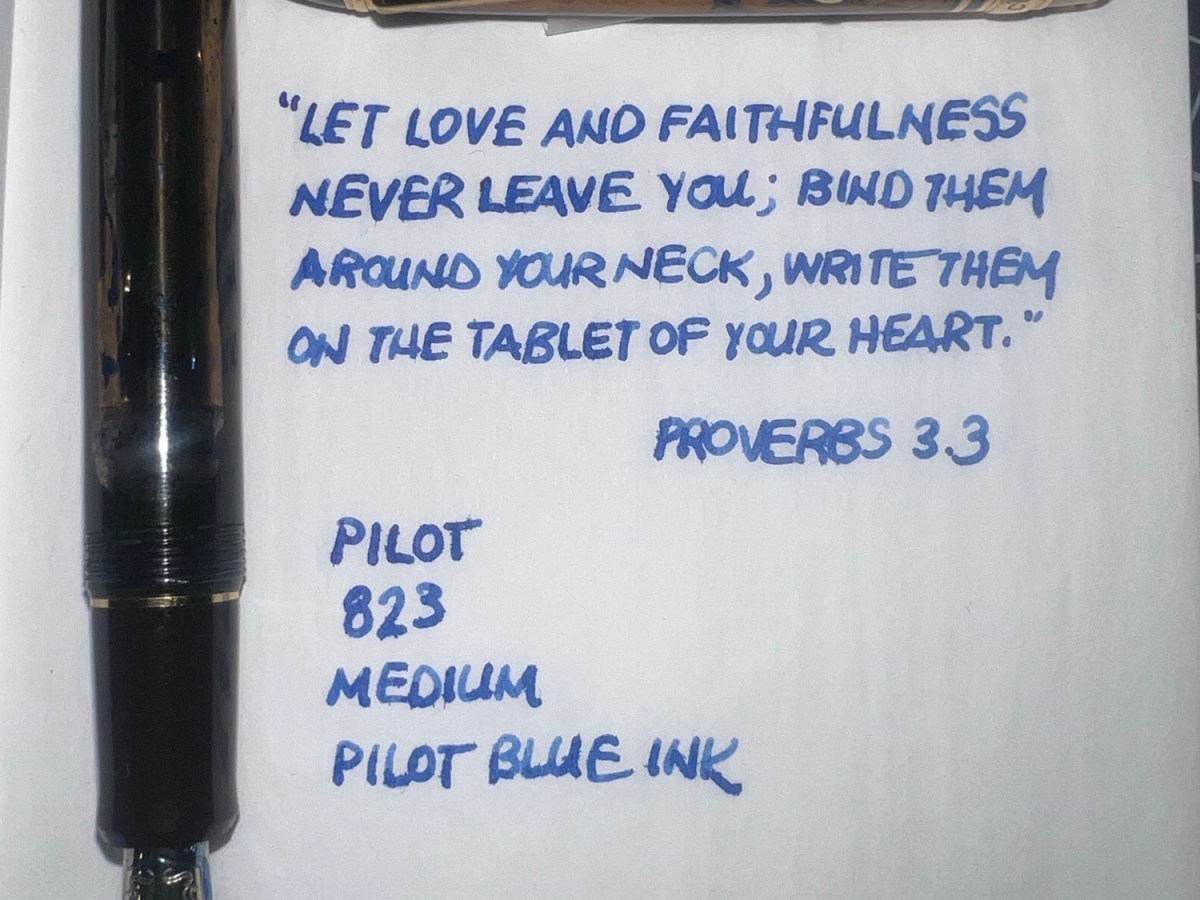 "LET LOVE AND FAITHFULNESS
NEVER LEAVE YOU; BIND THEM
AROUND YOUR NECK, WRITE THEM
ON THE TABLET OF YOUR HEART."
PROVERBS 3.3
PILOT
823
MEDIUM
PILOT BLUE INK